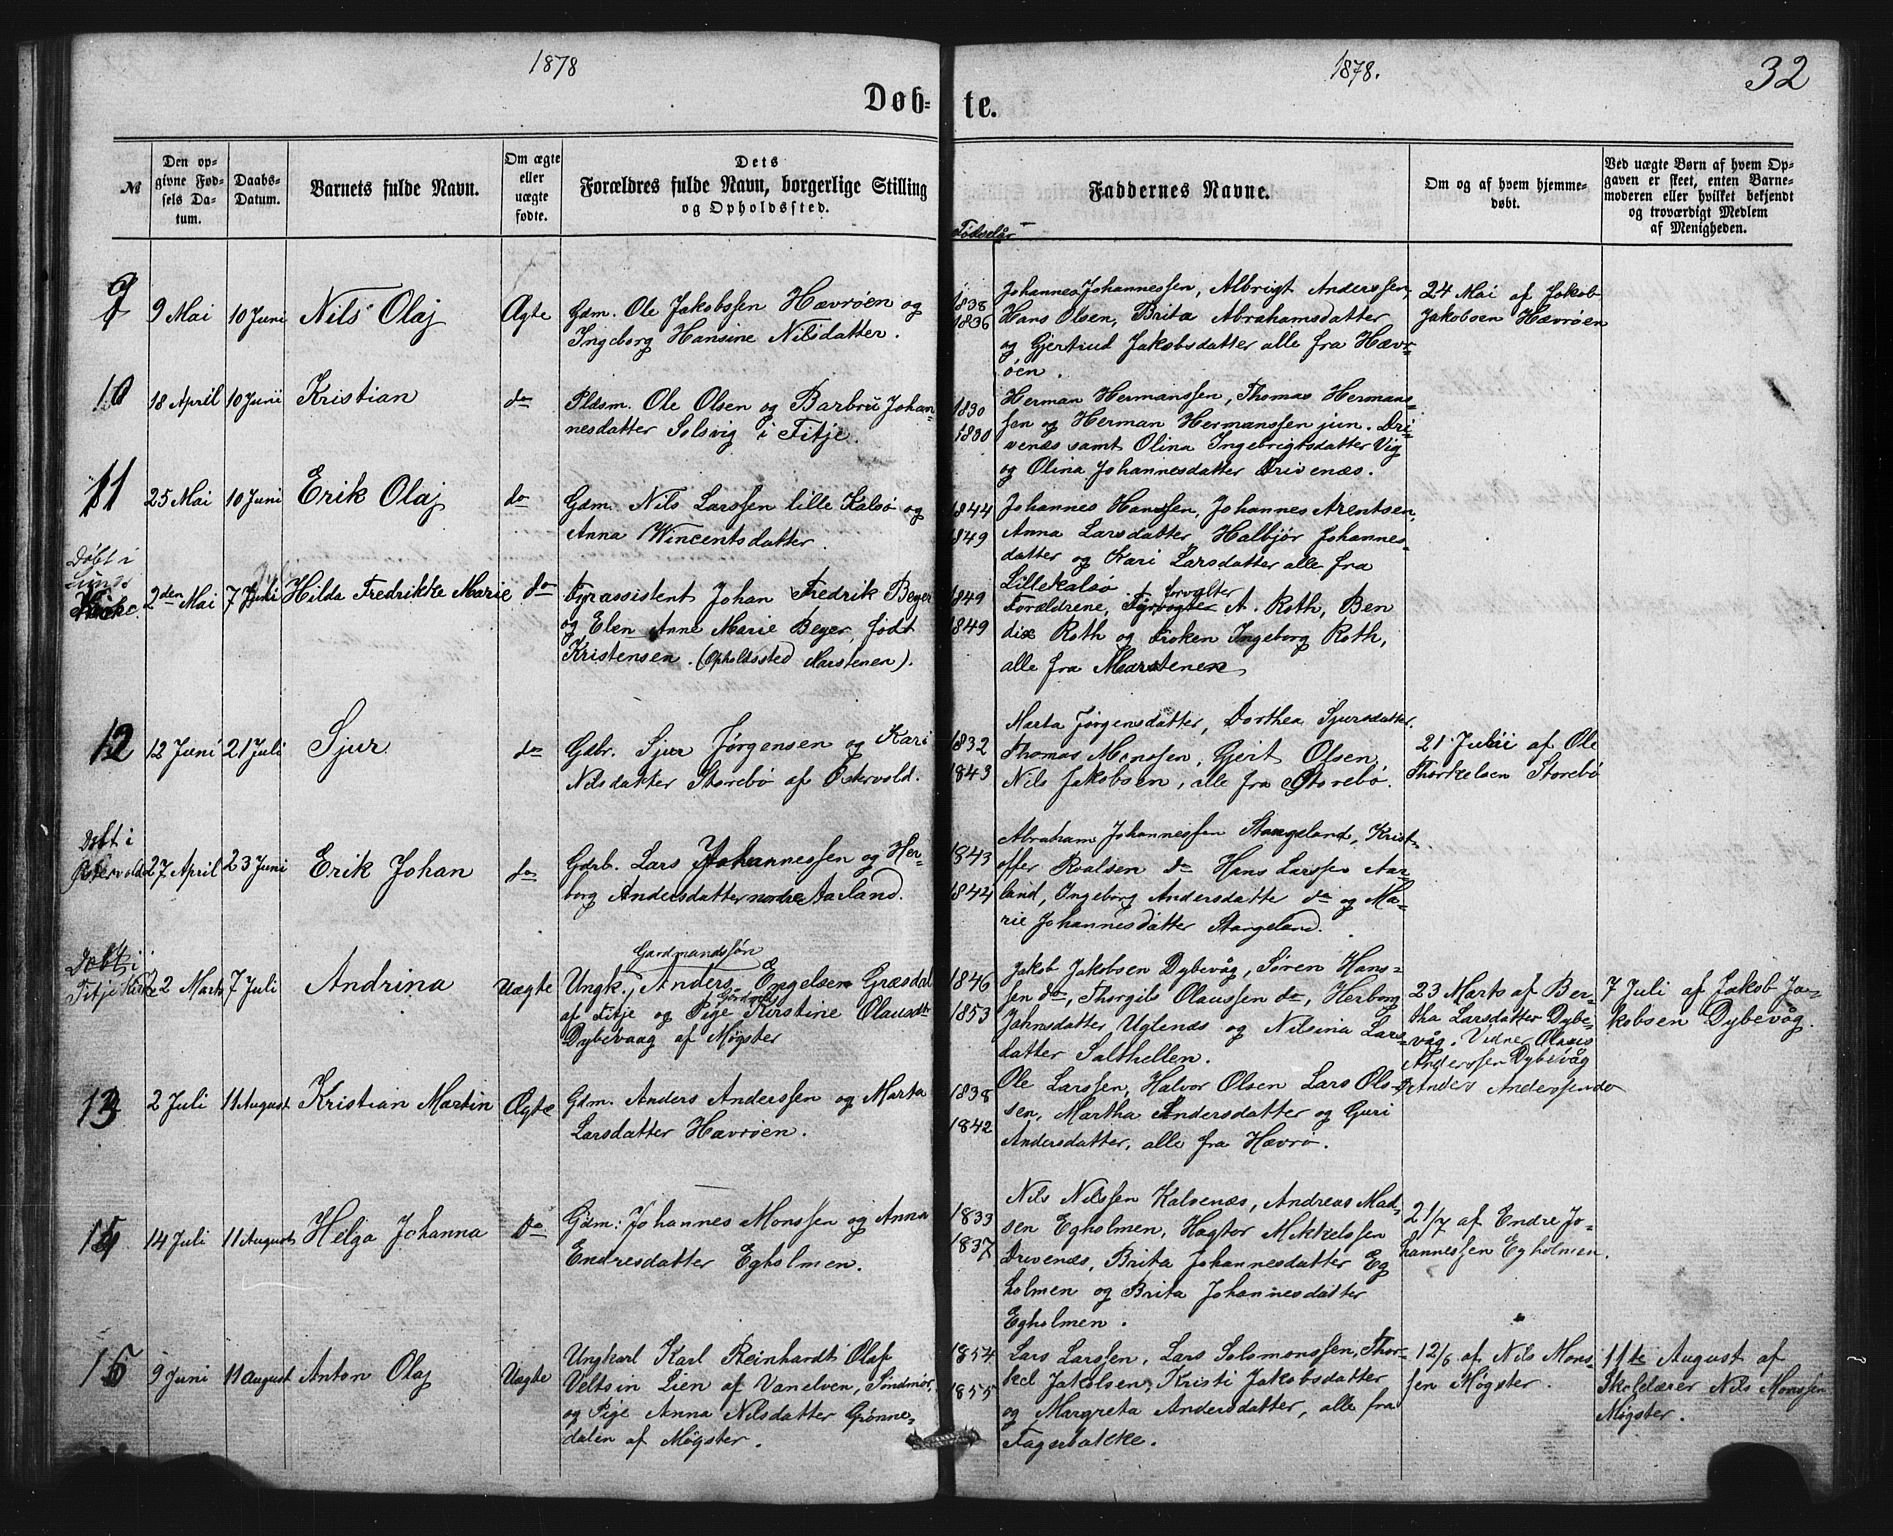 1878
1878.
32
Døb-
te.
№
Den op-
givne Fød-
sels Da-
tum.
Daabs-
Datum.
Barnets fulde Navn.
Om ægte
eller
uægte
fødte.
Dets
Forældres fulde Navn, borgerlige Stilling
og Opholdssted.
Fødselår
Faddernes Navne.
Om og af hvem hjemme-
døbt.
Ved uægte Børn af hvem Op-
gaven er skeet, enten Barne-
moderen eller hvilket bekjendt
og troværdigt Medlem
af Menigheden.
9
9 Mai
10 Juni
Nils Olaj
Ægte
Gdm. Ole Jakobssen Hævrøen og
Ingeborg Hansine Nilsdatter.
1838
1836
Johannes Johannessen, Albrigt Anderssen,
Hans Olsen, Brita Abrahamsdatter
og Gjertrud Jakobsdatter alle fra Hævr-
øen.
24 Mai af Jakob
Jakobsen Hævrøen
10
18 April
10 Juni
Kristian
do
Pldsm. Ole Olsen og Barbru Johan-
nesdatter Solsvig i Fitje.
1830
1830
Herman Hermanssen, Thomas Hermans-
sen og Herman Hermanssen jun. Dri-
venæs samt Olina Ingebrigtsdatter Vig
og Olina Johannesdatter Drivenæs.
11
25 Mai
10 Juni
Erik Olaj
do
Gdm. Nils Larssen lille Kalsø og
Anna Wincentsdatter.
1844
1849
Johannes Hanssen, Johannes Arentsen,
Anna Larsdatter Halbjør Johannes-
datter og Kari Larsdatter alle fra
Lillekalsø
Døbt i
Kirke.
2den Mai
7 Juli
Hilda Fredrikke Marie
do
Fyrassistent Johan Fredrik Beyer
og Elen Anne Marie Beyer, født
Kristensen. (Opholdssted Marstenen).
1849
1849
Forældrene, Fyrvogter forvalter A. Roth, Ben
dix Roth og Frøken Ingeborg Roth,
alle fra Marstenen
12
12 Juni
21 Juli
Sjur
do
Gdbr. Sjur Jørgensen og Kari
Nilsdatter Storebø af Østervold.
1832
1843
Marta Jørgensdatter, Dorthea Sjursdatter.
Thomas Monssen, Gjert Olsen,
Nils Jakobsen, alle fra Storebø.
21 Juli af Ole
Thorkelsen Storebø
Døbt i
Østervold
27 April
23 Juni
Erik Johan
do
Gdrb. Lars Johannessen og Her-
borg Andersdatter nordre Aarland.
1843
1842
Abraham Johannessen Stangeland, Krist-
offer Roalsen do Hans Larssen Aar-
land, Ingeborg Andersdatte do og Ma-
rie Johannesdatter Stangeland.
Døbt i
Fitje Kirke
22 Marts
7 Juli
Andrina
Uægte
Gardmandssøn
Ungk., Anders Engelsen Græsdal
af Fitje og Pige Kirstine Olausdtr
Dybevaag af Møgster
1846
1853
Jakob Jakobsen Dybevåg, Søren Hans-
sen do, Thorgils Olaussen do, Herborg
Johnsdatter Uglenæs og Nilsina Lars-
datter Salthellen.
23 Marts af Ber-
tha Larsdatter Dybe-
våg. Vidner Olaus
Anderssen Dybevåg
Anders Anderssen do
7 Juli af Jakob Ja-
kobsen Dybevåg.
13
2 Juli
11 August
Kristian Martin
Ægte
Gdm. Anders Anderssen og Marta
Larsdatter Hævrøen.
1838
1842
Ole Larssen, Halvor Olsen Lars Ols-
sen, Martha Andersdatter og Guri
Andersdatter, alle fra Hævrø.
14 Juli
11 August
Helga Johanna
Do
Gdm: Johannes Monssen og Anna
Endresdatter Egholmen.
1833
1837
Nils Nilssen Kalvenæs, Andreas Mad-
sen Egholmen, Hagtor Mikkelssen
Drivenæs, Brita Johannesdatter Eg
holmen og Brita Johannesdatter
Egholmen.
21/7 af Endre Jo-
hannessen Egholmen.
15
9 Juni
11 August
Anton Olaj
Uægte
Ungkarl Karl Reinhardt Olaf
Veltsin Lien af Vanelven, Søndmør,
og Pige Anna Nilsdatter Grønne-
dalen af Møgster.
1854
1855
Lars Larssen, Lars Solomonssen, Thor-
kel Jakobsen, Kristi Jakobsdatter
og Margreta Andersdatter, alle fra
Fagerbakke.
12/6 af Nils Mons-
sen Møgster.
11te August af
Skolelærer Nils Monssen
Møgster.